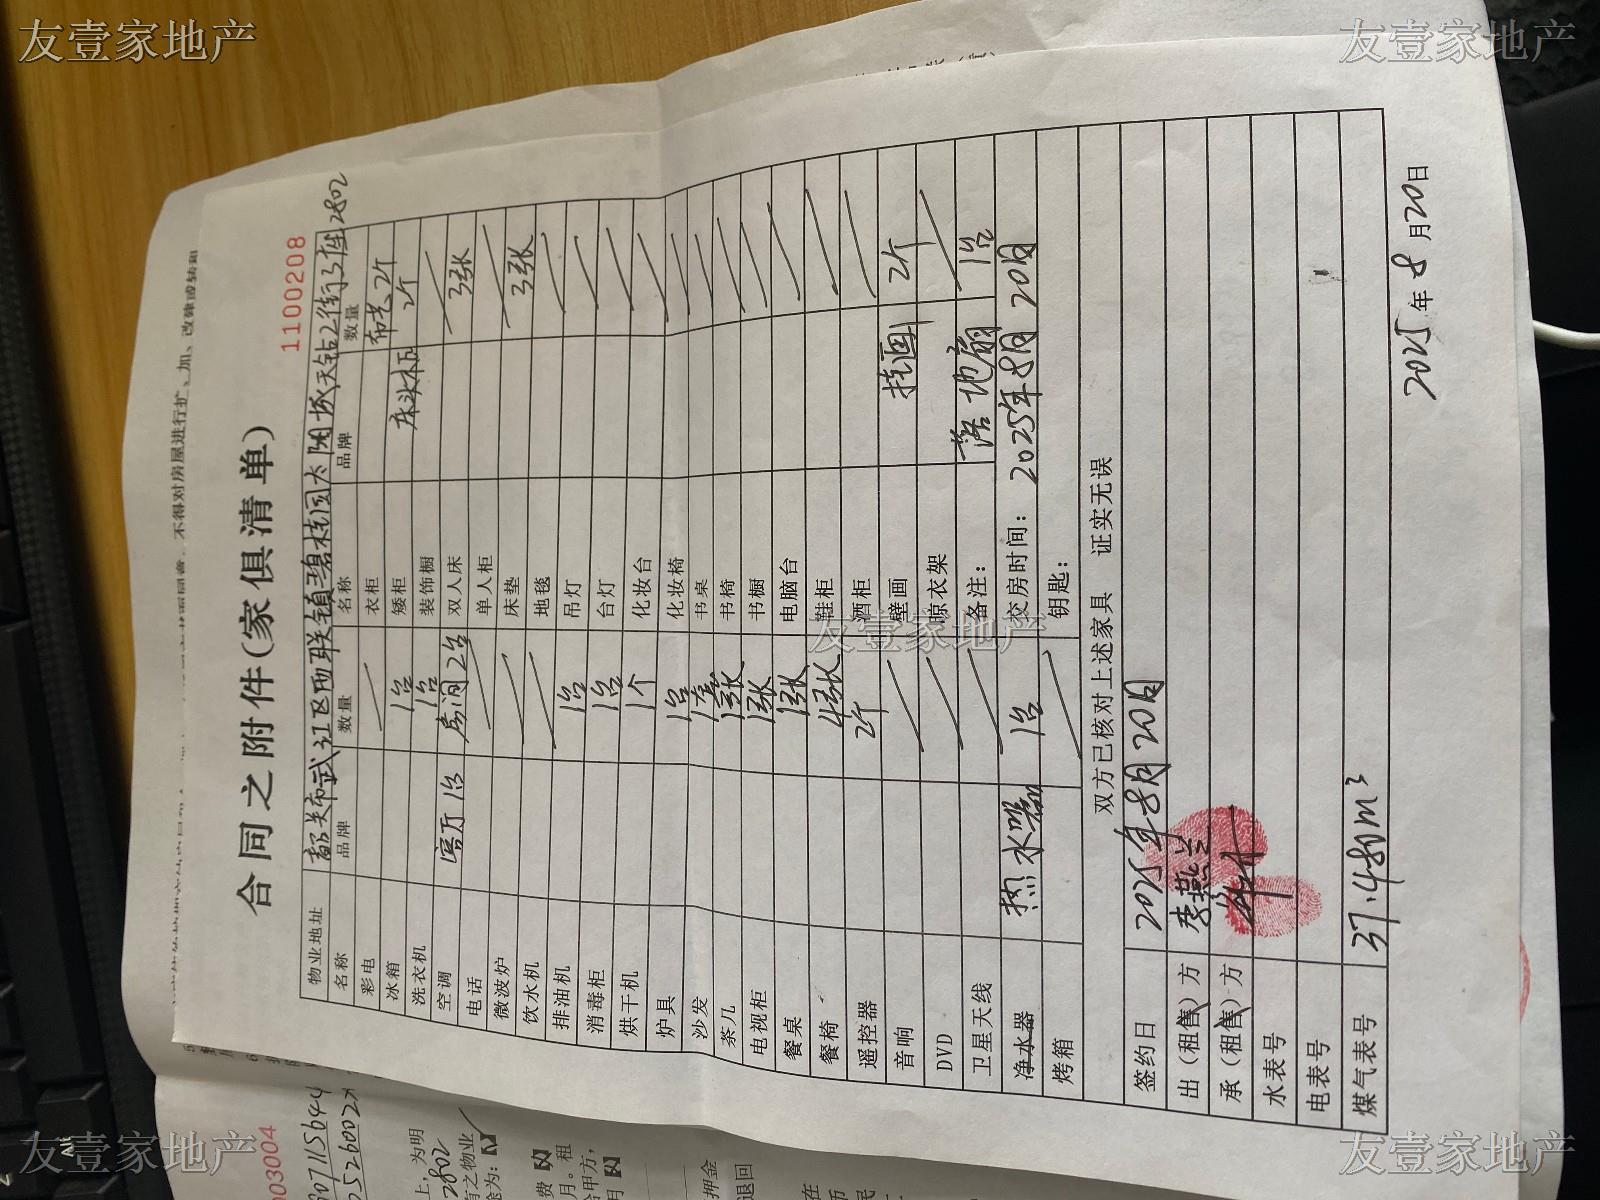 友壹家地产
友壹家地产
合同之附件(家俱清单)
1100208
物业地址 韶关市武江区西联镇碧桂园太阳城天钻2街3座2802
名称 品牌 数量 名称 品牌 数量
彩电 / 衣柜 布艺2个
冰箱 1台 矮柜 床头柜 2个
洗衣机 1台 装饰橱 /
空调 客厅1台 房间2台 双人床 3张
电话 / 单人柜 /
微波炉 / 床垫 3张
饮水机 / 地毯 /
排油机 1台 吊灯 /
消毒柜 1台 台灯 /
烘干机 1个 化妆台 /
炉具 1台 化妆椅 /
沙发 1套 书桌 /
茶几 1张 书椅 /
电视柜 1张 书橱 /
餐桌 1张 电脑台 /
餐椅 4张 鞋柜 /
遥控器 2个 酒柜 /
音响 / 壁画 挂画 2个
DVD / 晾衣架 /
卫星天线 / 备注: 落地扇 1台
净水器 热水器 1台 交房时间: 2025年8月20日
烤箱 / 钥匙:
双方已核对上述家具 证实无误
签约日 2025年8月20日
出(租售)方 李燕兰
承(租售)方
水表号
电表号
煤气表号 37.480m³
2025年8月20日
不得对房屋进行扩、加、改建或转租
003004
2802
友壹家地产
友壹家地产
友壹家地产